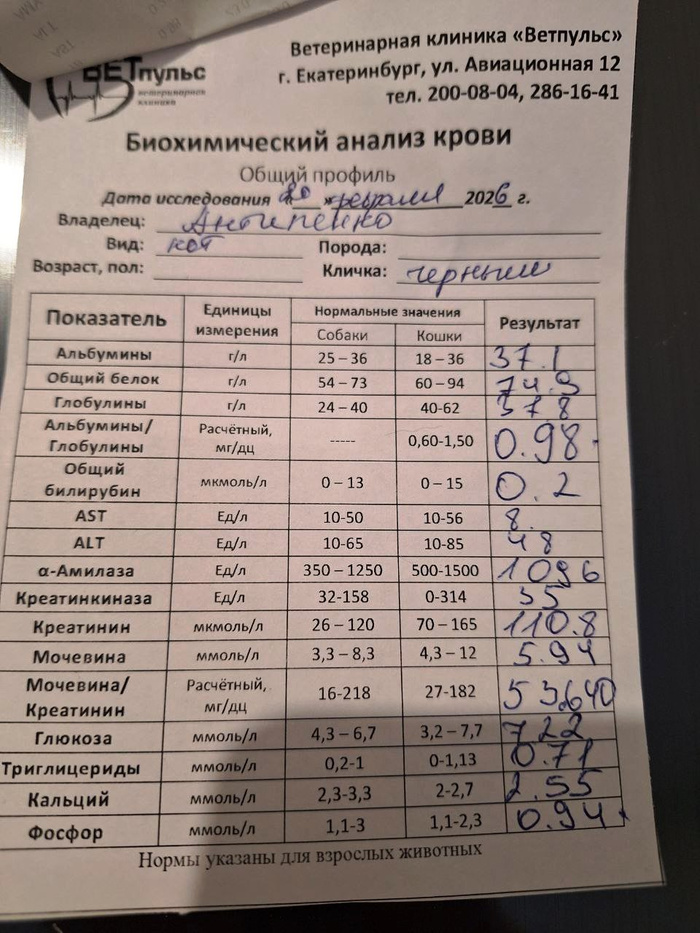 Ветеринарная клиника «Ветпульс»
г. Екатеринбург, ул. Авиационная 12
тел. 200-08-04, 286-16-41
ВЕТпульс
ветеринарная
клиника
Биохимический анализ крови
Общий профиль
Дата исследования «20» февраля 2026 г.
Владелец: Антипенко
Вид: кот Порода:
Возраст, пол: Кличка: Черныш
Показатель Единицы измерения Нормальные значения Результат
Собаки Кошки
Альбумины г/л 25 – 36 18 – 36 37.1
Общий белок г/л 54 – 73 60 – 94 74.9
Глобулины г/л 24 – 40 40-62 37 8
Альбумины/ Глобулины Расчётный, мг/дц ----- 0,60-1,50 0.98
Общий билирубин мкмоль/л 0 – 13 0 – 15 0.2
AST Ед/л 10-50 10-56 8.
ALT Ед/л 10-65 10-85 48
α-Амилаза Ед/л 350 – 1250 500-1500 1096
Креатинкиназа Ед/л 32-158 0-314 35
Креатинин мкмоль/л 26 – 120 70 – 165 110.8
Мочевина ммоль/л 3,3 – 8,3 4,3 – 12 5.94
Мочевина/ Креатинин Расчётный, мг/дц 16-218 27-182
Глюкоза ммоль/л 4,3 – 6,7 3,2 – 7,7 7 22
Триглицериды ммоль/л 0,2-1 0-1,13 0.71
Кальций ммоль/л 2,3-3,3 2-2,7 2.55
Фосфор ммоль/л 1,1-3 1,1-2,3 0.94
Нормы указаны для взрослых животных